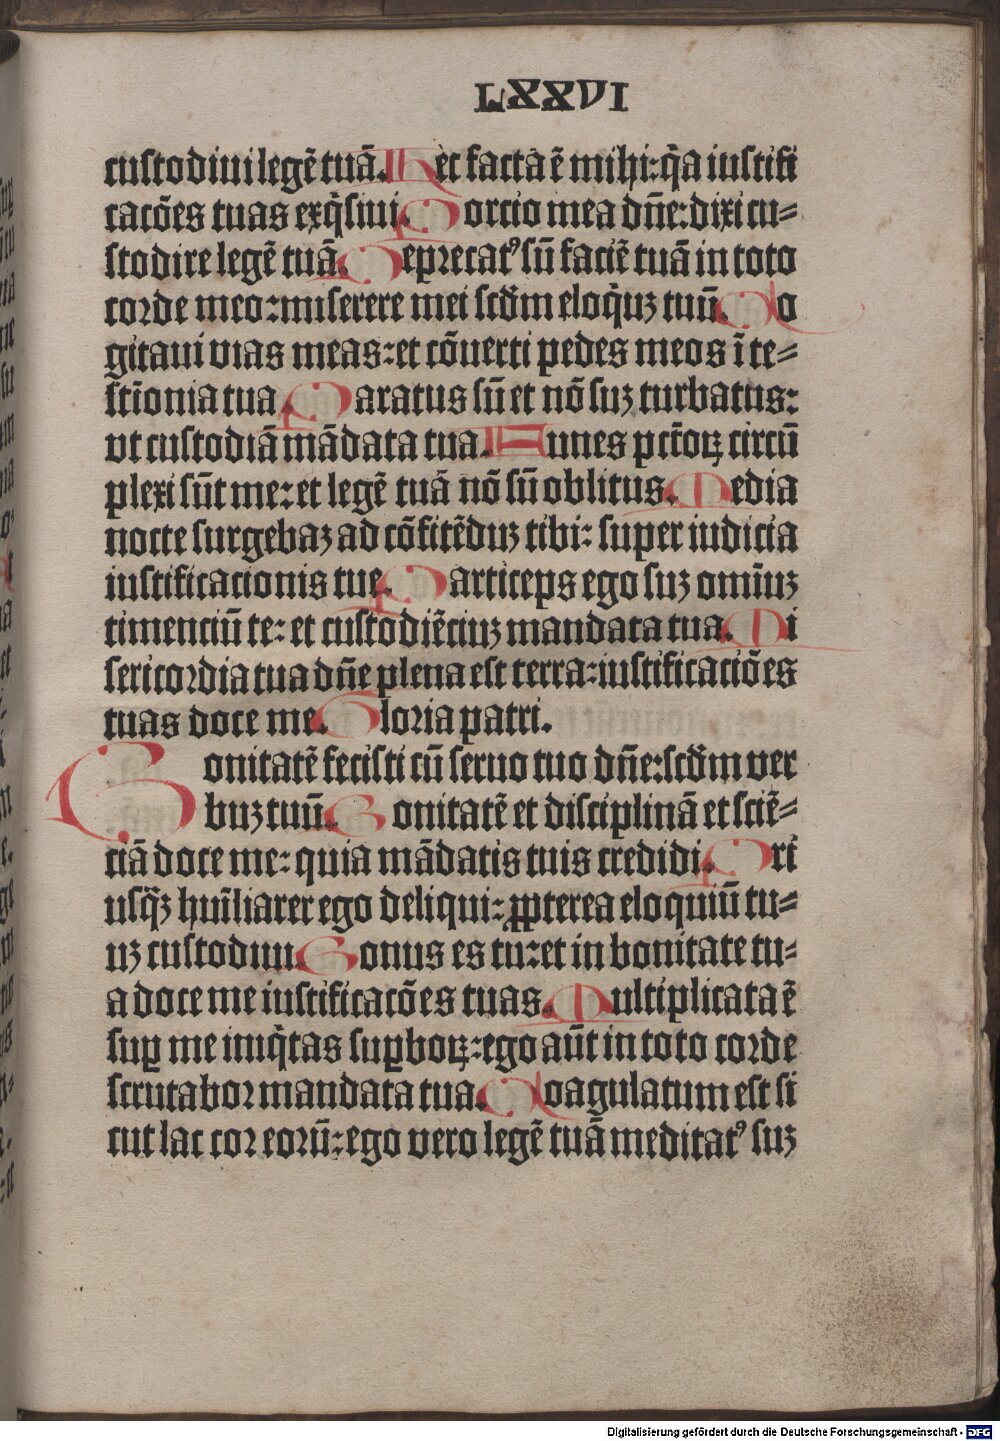 LXXVI
custodiui legē tuā. Hec facta ē mihi: q̄a iustifi
cacōes tuas exq̄siui. Porcio mea dn̄e: dixi cu-
stodire legē tuā. Deprecatꝰ sū faciē tuā in toto
corde meo: miserere mei scd̄m eloq̄uꝫ tuū. Co
gitaui vias meas: et cōuerti pedes meos ī te-
stīonia tua. Paratus sū et nō suꝫ turbatus:
vt custodiā mādata tua. Funes pctōꝝ circū
plexi sūt me: et legē tuā nō sū oblitus. Media
nocte surgebaꝫ ad cōfitēduꝫ tibi: super iudicia
iustificacionis tue. Particeps ego suꝫ omīuꝫ
timenciū te: et custodiēciuꝫ mandata tua. Mi
sericordia tua dn̄e plena est terra: iustificaciōes
tuas doce me. Gloria patri.
Bonitatē fecisti cū seruo tuo dn̄e: scd̄m ver
buꝫ tuū. Bonitatē et disciplinā et sciē-
ciā doce me: quia mādatis tuis credidi. Pri
usq̄ꝫ huīliarer ego deliqui: ꝓpterea eloquiū tu-
uꝫ custodiui. Bonus es tu: et in bonitate tu-
a doce me iustificacōes tuas. Multiplicata ē
suꝑ me iniq̄tas suꝑboꝝ: ego aūt in toto corde
scrutabor mandata tua. Coagulatum est si
cut lac cor eorū: ego vero legē tuā meditatꝰ suꝫ
Digitalisierung gefördert durch die Deutsche Forschungsgemeinschaft - DFG